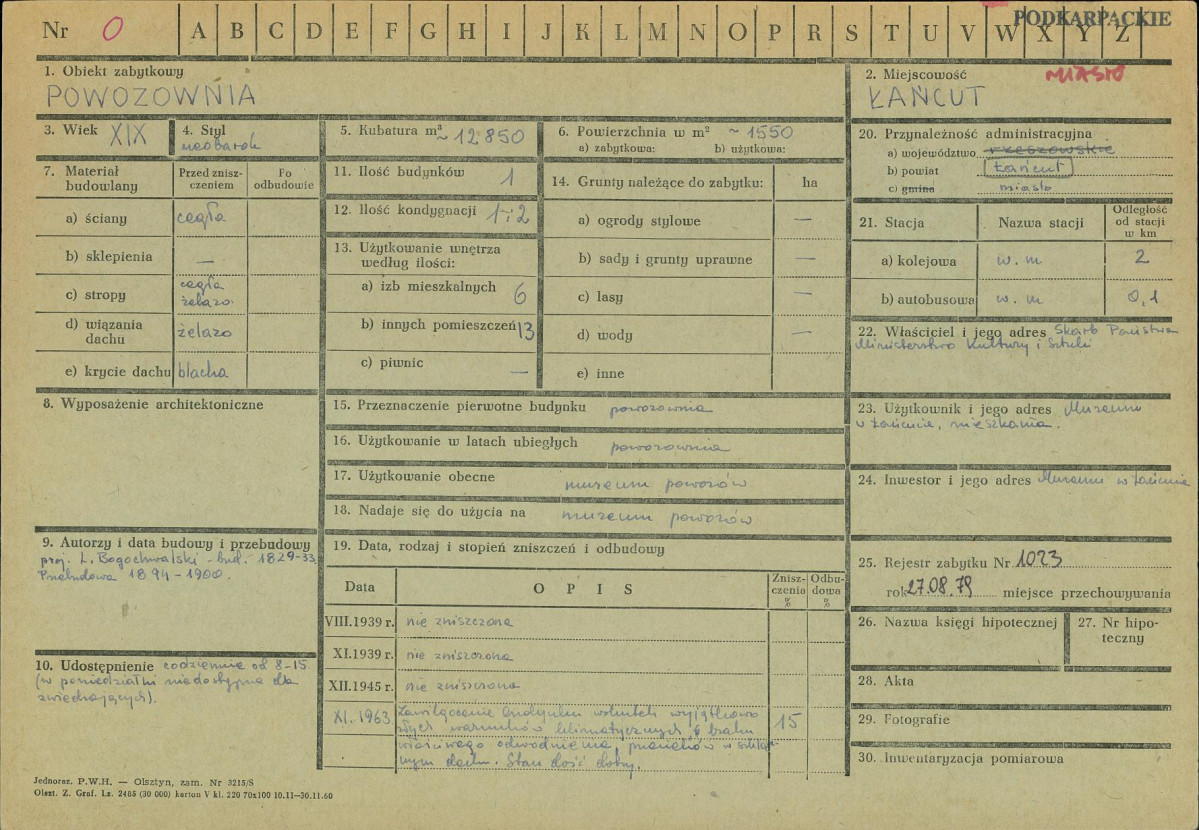 Nr 0 A B C D E F G H I J K L M N O P R S T U V W X Y Z
PODKARPACKIE
1. Obiekt zabytkowy
POWOZOWNIA
2. Miejscowość MIASTO
ŁAŃCUT
3. Wiek XIX
4. Styl
neobarok
5. Kubatura m³ ~ 12 850
6. Powierzchnia w m² ~ 1550
a) zabytkowa: b) użytkowa:
7. Materiał budowlany
Przed znisz-
czeniem
Po
odbudowie
a) ściany cegła
b) sklepienia —
c) stropy cegła
żelazo
d) wiązania
dachu żelazo
e) krycie dachu blacha
8. Wyposażenie architektoniczne
9. Autorzy i data budowy i przebudowy
proj. L. Bogochwalski - bud. 1829-33,
Przebudowa 1894-1900.
10. Udostępnienie codziennie od 8-15
(w poniedziałki niedostępna dla
zwiedzających).
11. Ilość budynków 1
12. Ilość kondygnacji 1 i 2
13. Użytkowanie wnętrza
według ilości:
a) izb mieszkalnych 6
b) innych pomieszczeń 13
c) piwnic —
14. Grunty należące do zabytku: ha
a) ogrody stylowe —
b) sady i grunty uprawne —
c) lasy —
d) wody —
e) inne
15. Przeznaczenie pierwotne budynku powozownia
16. Użytkowanie w latach ubiegłych powozownia
17. Użytkowanie obecne muzeum powozów
18. Nadaje się do użycia na muzeum powozów
19. Data, rodzaj i stopień zniszczeń i odbudowy
Data O P I S Znisz-
czenia
% Odbu-
dowa
%
VIII.1939 r. nie zniszczona
XI.1939 r. nie zniszczona
XII.1945 r. nie zniszczona
XI.1963. Zawilgocenie budynku wskutek wyjątkowo 15
złych warunków klimatycznych, braku
właściwego odwodnienia, przecieków w
dachu. Stan dość dobry.
20. Przynależność administracyjna
a) województwo rzeszowskie
b) powiat Łańcut
c) gmina miasto
21. Stacja Nazwa stacji Odległość
od stacji
w km
a) kolejowa w. m 2
b) autobusowa w. m 0,1
22. Właściciel i jego adres Skarb Państwa
Ministerstwo Kultury i Sztuki
23. Użytkownik i jego adres Muzeum
w Łańcucie, mieszkania.
24. Inwestor i jego adres Muzeum w Łańcucie
25. Rejestr zabytku Nr 1023
rok 27.08.79 miejsce przechowywania
26. Nazwa księgi hipotecznej
27. Nr hipo-
teczny
28. Akta
29. Fotografie
30. Inwentaryzacja pomiarowa
Jednoraz. P.W.H. — Olsztyn, zam. Nr 3215/S
Olszt. Z. Graf. Lz. 2485 (30 000) karton V kl. 220 70x100 10.11—30.11.60